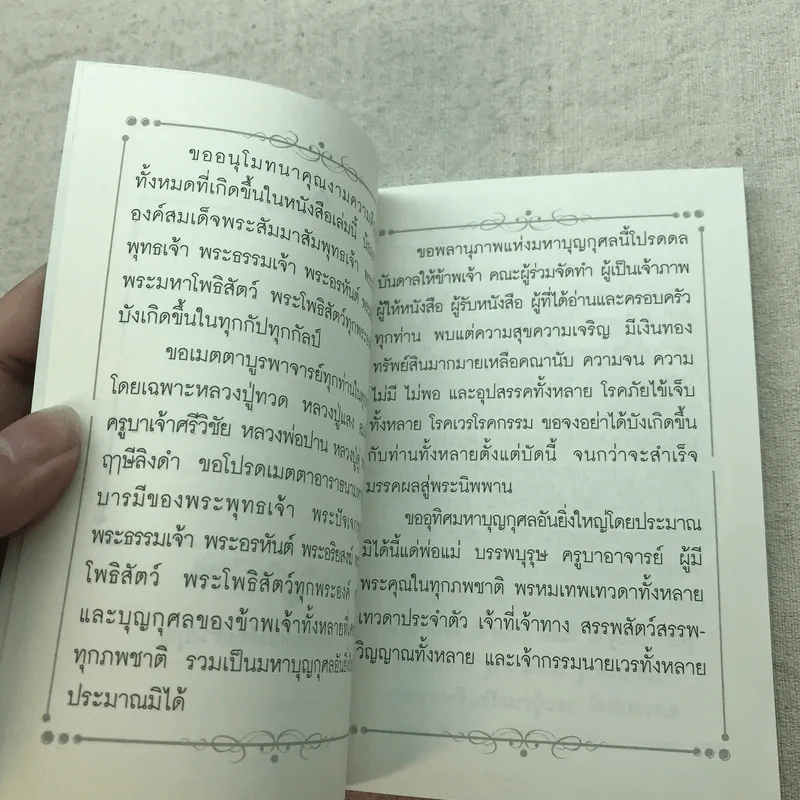 ขออนุโมทนาคุณงามความดี
ทั้งหมดที่เกิดขึ้นในหนังสือเล่มนี้
องค์สมเด็จพระสัมมาสัมพุทธเจ้า
พุทธเจ้า พระธรรมเจ้า พระอรหันต์
พระมหาโพธิสัตว์ พระโพธิสัตว์ทุกพระองค์
บังเกิดขึ้นในทุกกัปทุกกัลป์
ขอเมตตาบูรพาจารย์ทุกท่าน
โดยเฉพาะหลวงปู่ทวด หลวงปู่แสง
ครูบาเจ้าศรีวิชัย หลวงพ่อปาน หลวงปู่
ฤๅษีลิงดำ ขอโปรดเมตตาอาราธนา
บารมีของพระพุทธเจ้า
พระธรรมเจ้า พระอรหันต์ พระอริยสงฆ์
โพธิสัตว์ พระโพธิสัตว์ทุกพระองค์
และบุญกุศลของข้าพเจ้าทั้งหลาย
ทุกภพชาติ รวมเป็นมหาบุญกุศลอันยิ่ง
ประมาณมิได้
ขอพลานุภาพแห่งมหาบุญกุศลนี้โปรดดล
บันดาลให้ข้าพเจ้า คณะผู้ร่วมจัดทำ ผู้เป็นเจ้าภาพ
ผู้ให้หนังสือ ผู้รับหนังสือ ผู้ที่ได้อ่านและครอบครัว
ทุกท่าน พบแต่ความสุขความเจริญ มีเงินทอง
ทรัพย์สินมากมายเหลือคณานับ ความจน ความ
ไม่มี ไม่พอ และอุปสรรคทั้งหลาย โรคภัยไข้เจ็บ
ทั้งหลาย โรคเวรโรคกรรม ขอจงอย่าได้บังเกิดขึ้น
กับท่านทั้งหลายตั้งแต่บัดนี้ จนกว่าจะสำเร็จ
มรรคผลสู่พระนิพพาน
ขออุทิศมหาบุญกุศลอันยิ่งใหญ่โดยประมาณ
มิได้นี้แด่พ่อแม่ บรรพบุรุษ ครูบาอาจารย์ ผู้มี
พระคุณในทุกภพชาติ พรหมเทพเทวดาทั้งหลาย
เทวดาประจำตัว เจ้าที่เจ้าทาง สรรพสัตว์สรรพ-
วิญญาณทั้งหลาย และเจ้ากรรมนายเวรทั้งหลาย